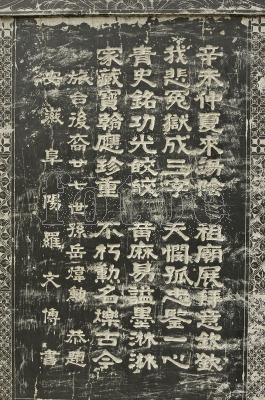 辛未仲夏來湯陰 祖廟展拜意欽欽
我悲冤獄成三字 天憫孤忠鑒一心
青史銘功光皎皎 黃麻易謚墨淋淋
家藏寶翰應珍重 不朽勳名爍古今
旅台後裔廿七世孫岳煒勳 恭題
安徽阜陽羅文傳書